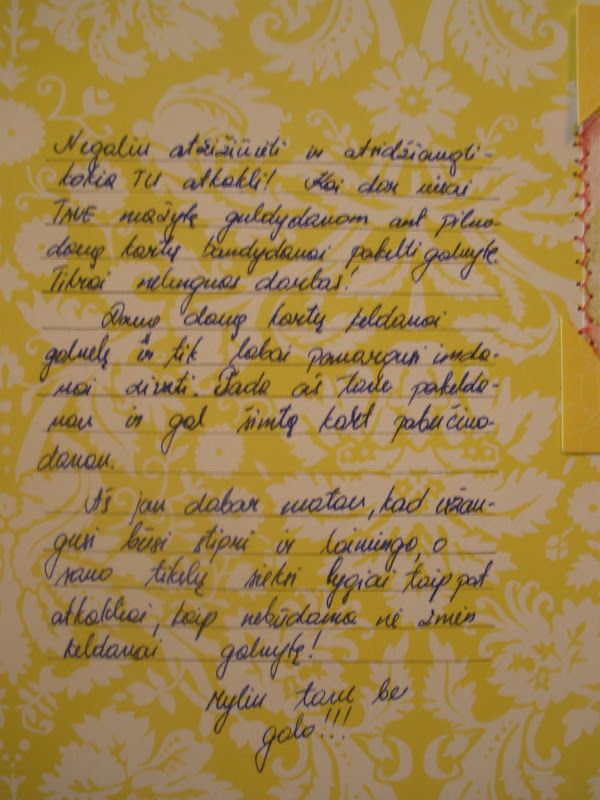 Negaliu atžižiūrėti ir atsidžiaugti-
kokia TU atkakli! Kai dar visai
TAVE mažytę guldydavom ant pilvo-
daug kartų bandydavai pakelti galvytę.
Tikrai nelengvas darbas!
Daug daug kartų keldavai
galvelę ir tik labai pavargusi imda-
vai zirzti. Tada aš tave pakelda-
vau ir gal šimtą kart pabučiuo-
davau.
Aš jau dabar matau, kad užau-
gusi būsi stipri ir laiminga, o
savo tikslų sieksi lygiai taip pat
atkakliai, kaip nebūdama nė 2 mėn
keldavai galvytę!
Myliu tave be
galo!!!